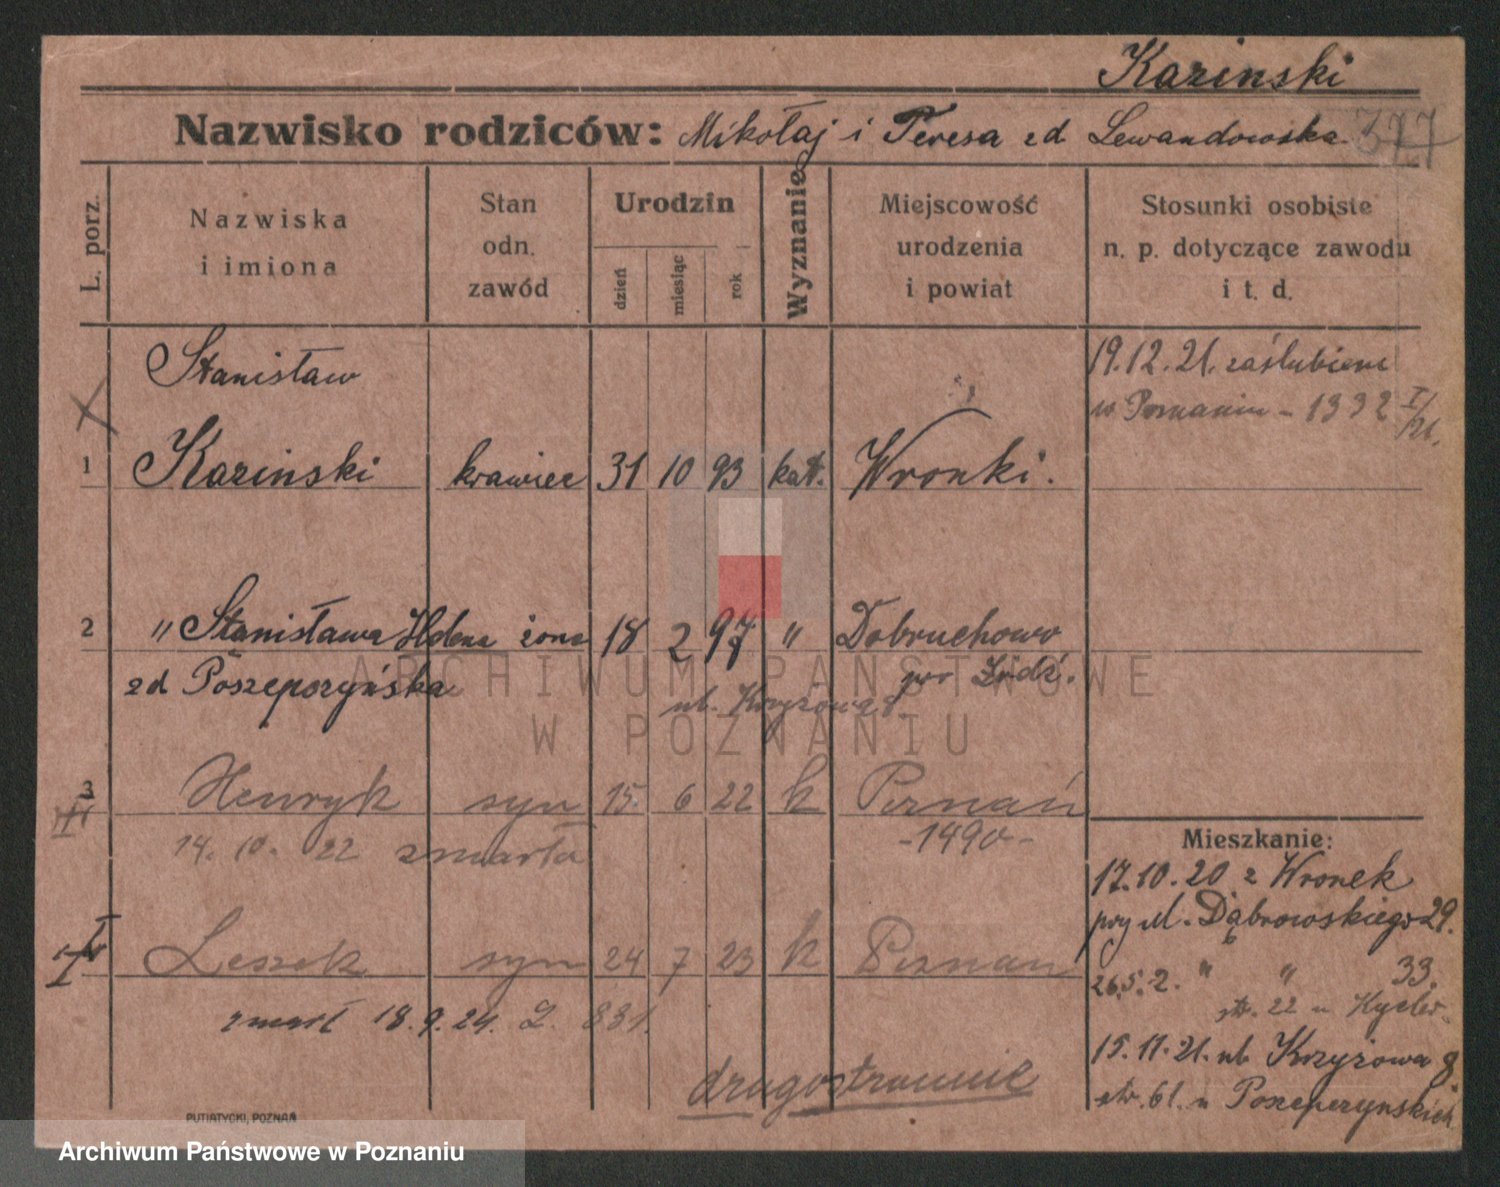 Kazinski
Nazwisko rodziców: Mikołaj i Teresa zd Lewandowska
377
L. porz.
Nazwiska i imiona
Stan odn. zawód
Urodzin
dzień
miesiąc
rok
Wyznanie
Miejscowość urodzenia i powiat
Stosunki osobiste n. p. dotyczące zawodu i t. d.
Stanisław
19.12.21. zaślubieni
w Poznaniu - 1332 I/21.
1 Kaziński krawiec 31 10 93 kat. Wronki.
2 " Stanisława Helena żona 18 2 97 " Dobruchowo
zd Poszepczyńska
pow Łódź.
ul. Krzyżowa 8
3 Henryk syn 15. 6 22 k Poznań
14. 10. 22 zmarła
-1490-
Leszek syn 24 7 23 k Poznań
zmarł 18.9.24. L. 831.
Mieszkanie:
17.10.20 z Wronek
przy M. Dąbrowskiego 29.
26.5.2. " " 33.
str. 22 u
15.11.21. ul Krzyżowa 8.
str. 61. u Poszepczynskich
drugostronnie
PUTIATYCKI, POZNAŃ
ARCHIWUM PAŃSTWOWE
W POZNANIU
Archiwum Państwowe w Poznaniu